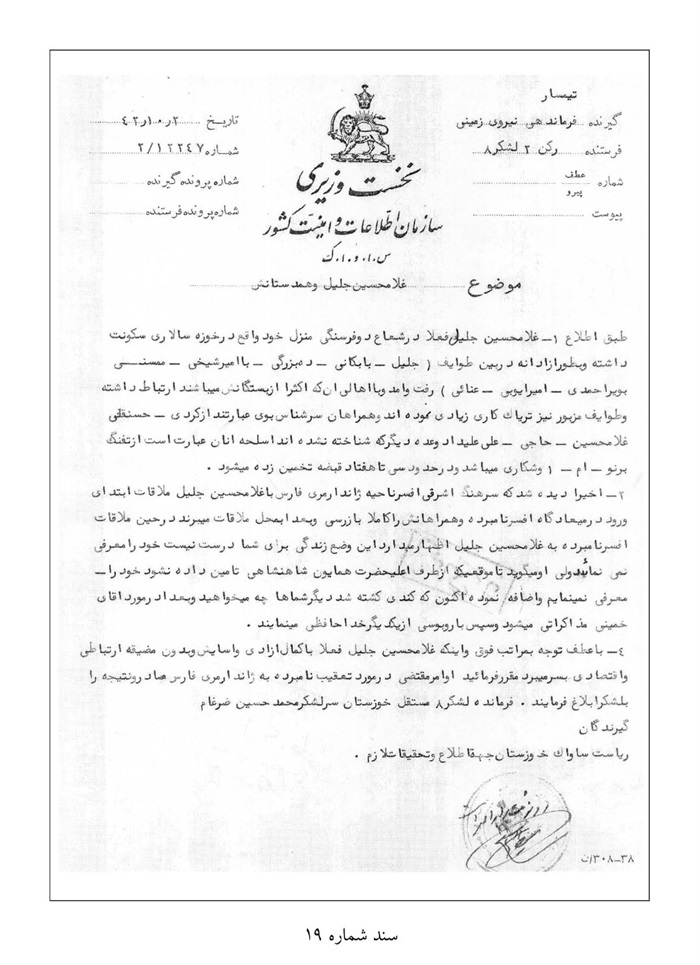 تیمسار
گیرنده فرماندهی نیروی زمینی
فرستنده رکن ۲ لشکر ۸
شماره عطف
پیرو
پیوست
نخست وزیری
سازمان اطلاعات و امنیت کشور
س.ا.و.ا.ک
تاریخ ۴۲٫۱۰٫۲
شماره ۲/۱۲۲۴۷
شماره پرونده گیرنده
شماره پرونده فرستنده
موضوع غلامحسین جلیل وهمدستانش
طبق اطلاع ۱ـ غلامحسین جلیل فعلا درشعاع دوفرسنگی منزل خود واقع درخوزه سالاری سکونت
داشته وبطورازادانه دربین طوایف ( جلیل ـ بابکانی ـ ده‌بزرگی ـ باامیرشیخی ـ ممسنی
بویراحمدی ـ امیرایوبی ـ عنائی ) رفت وامد وبااهالی ان‌که اکثرا ازبستگانش میباشند ارتباط داشته
وطوایف مزبور نیز تریاک کاری زیادی نموده اند وهمراهان سرشناس بوی عبارتند ازکردی ـ حسنقلی
غلامحسین ـ حاجی ـ علی علیداد وعده دیگرکه شناخته نشده اند اسلحه انان عبارت است ازتفنگ
برنو ـ ام ـ ۱ وشکاری میباشد ودرحدود سی تاهفتاد قبضه تخمین زده میشود .
۲ـ اخیرا دیده شد که سرهنگ اشرفی افسرناحیه ژاندارمری فارس باغلامحسین جلیل ملاقات ابتدای
ورود درمیعادگاه افسرنامبرده وهمراهانش راکاملا بازرسی وبعدابمحل ملاقات میبرند درحین ملاقات
افسرنامبرده به غلامحسین جلیل اظهارمیدارد این وضع زندگی برای شما درست نیست خود رامعرفی
نمی نمائیدولی اومیگوید تاموقعیکه ازطرف اعلیحضرت همایون شاهنشاهی تامین داده نشود خود راـ
معرفی نمینمایم واضافه نموده اکنون که کندی کشته شد دیگرشماها چه میخواهید وبعد درمورد اقای
خمینی مذاکراتی میشود وسپس باروبوسی ازیکدیگرخداحافظی مینمایند .
٤ـ باعطف توجه بمراتب فوق واینکه غلامحسین جلیل فعلا باکمال ازادی واسایش وبدون مضیقه ارتباطی
واقتصادی بسرمیبرد مقررفرمائید اوامرمقتضی درمورد تعقیب نامبرده به ژاندارمری فارس صادرونتیجه را
بلشکرابلاغ فرمایند . فرمانده لشکر۸ مستقل خوزستان سرلشکرمحمد حسین ضرغام
گیرندگان
ریاست ساواک خوزستان جهة اطلاع وتحقیقات لازم .
۳۸ـ۳۰۸/ن
سند شماره ۱۹